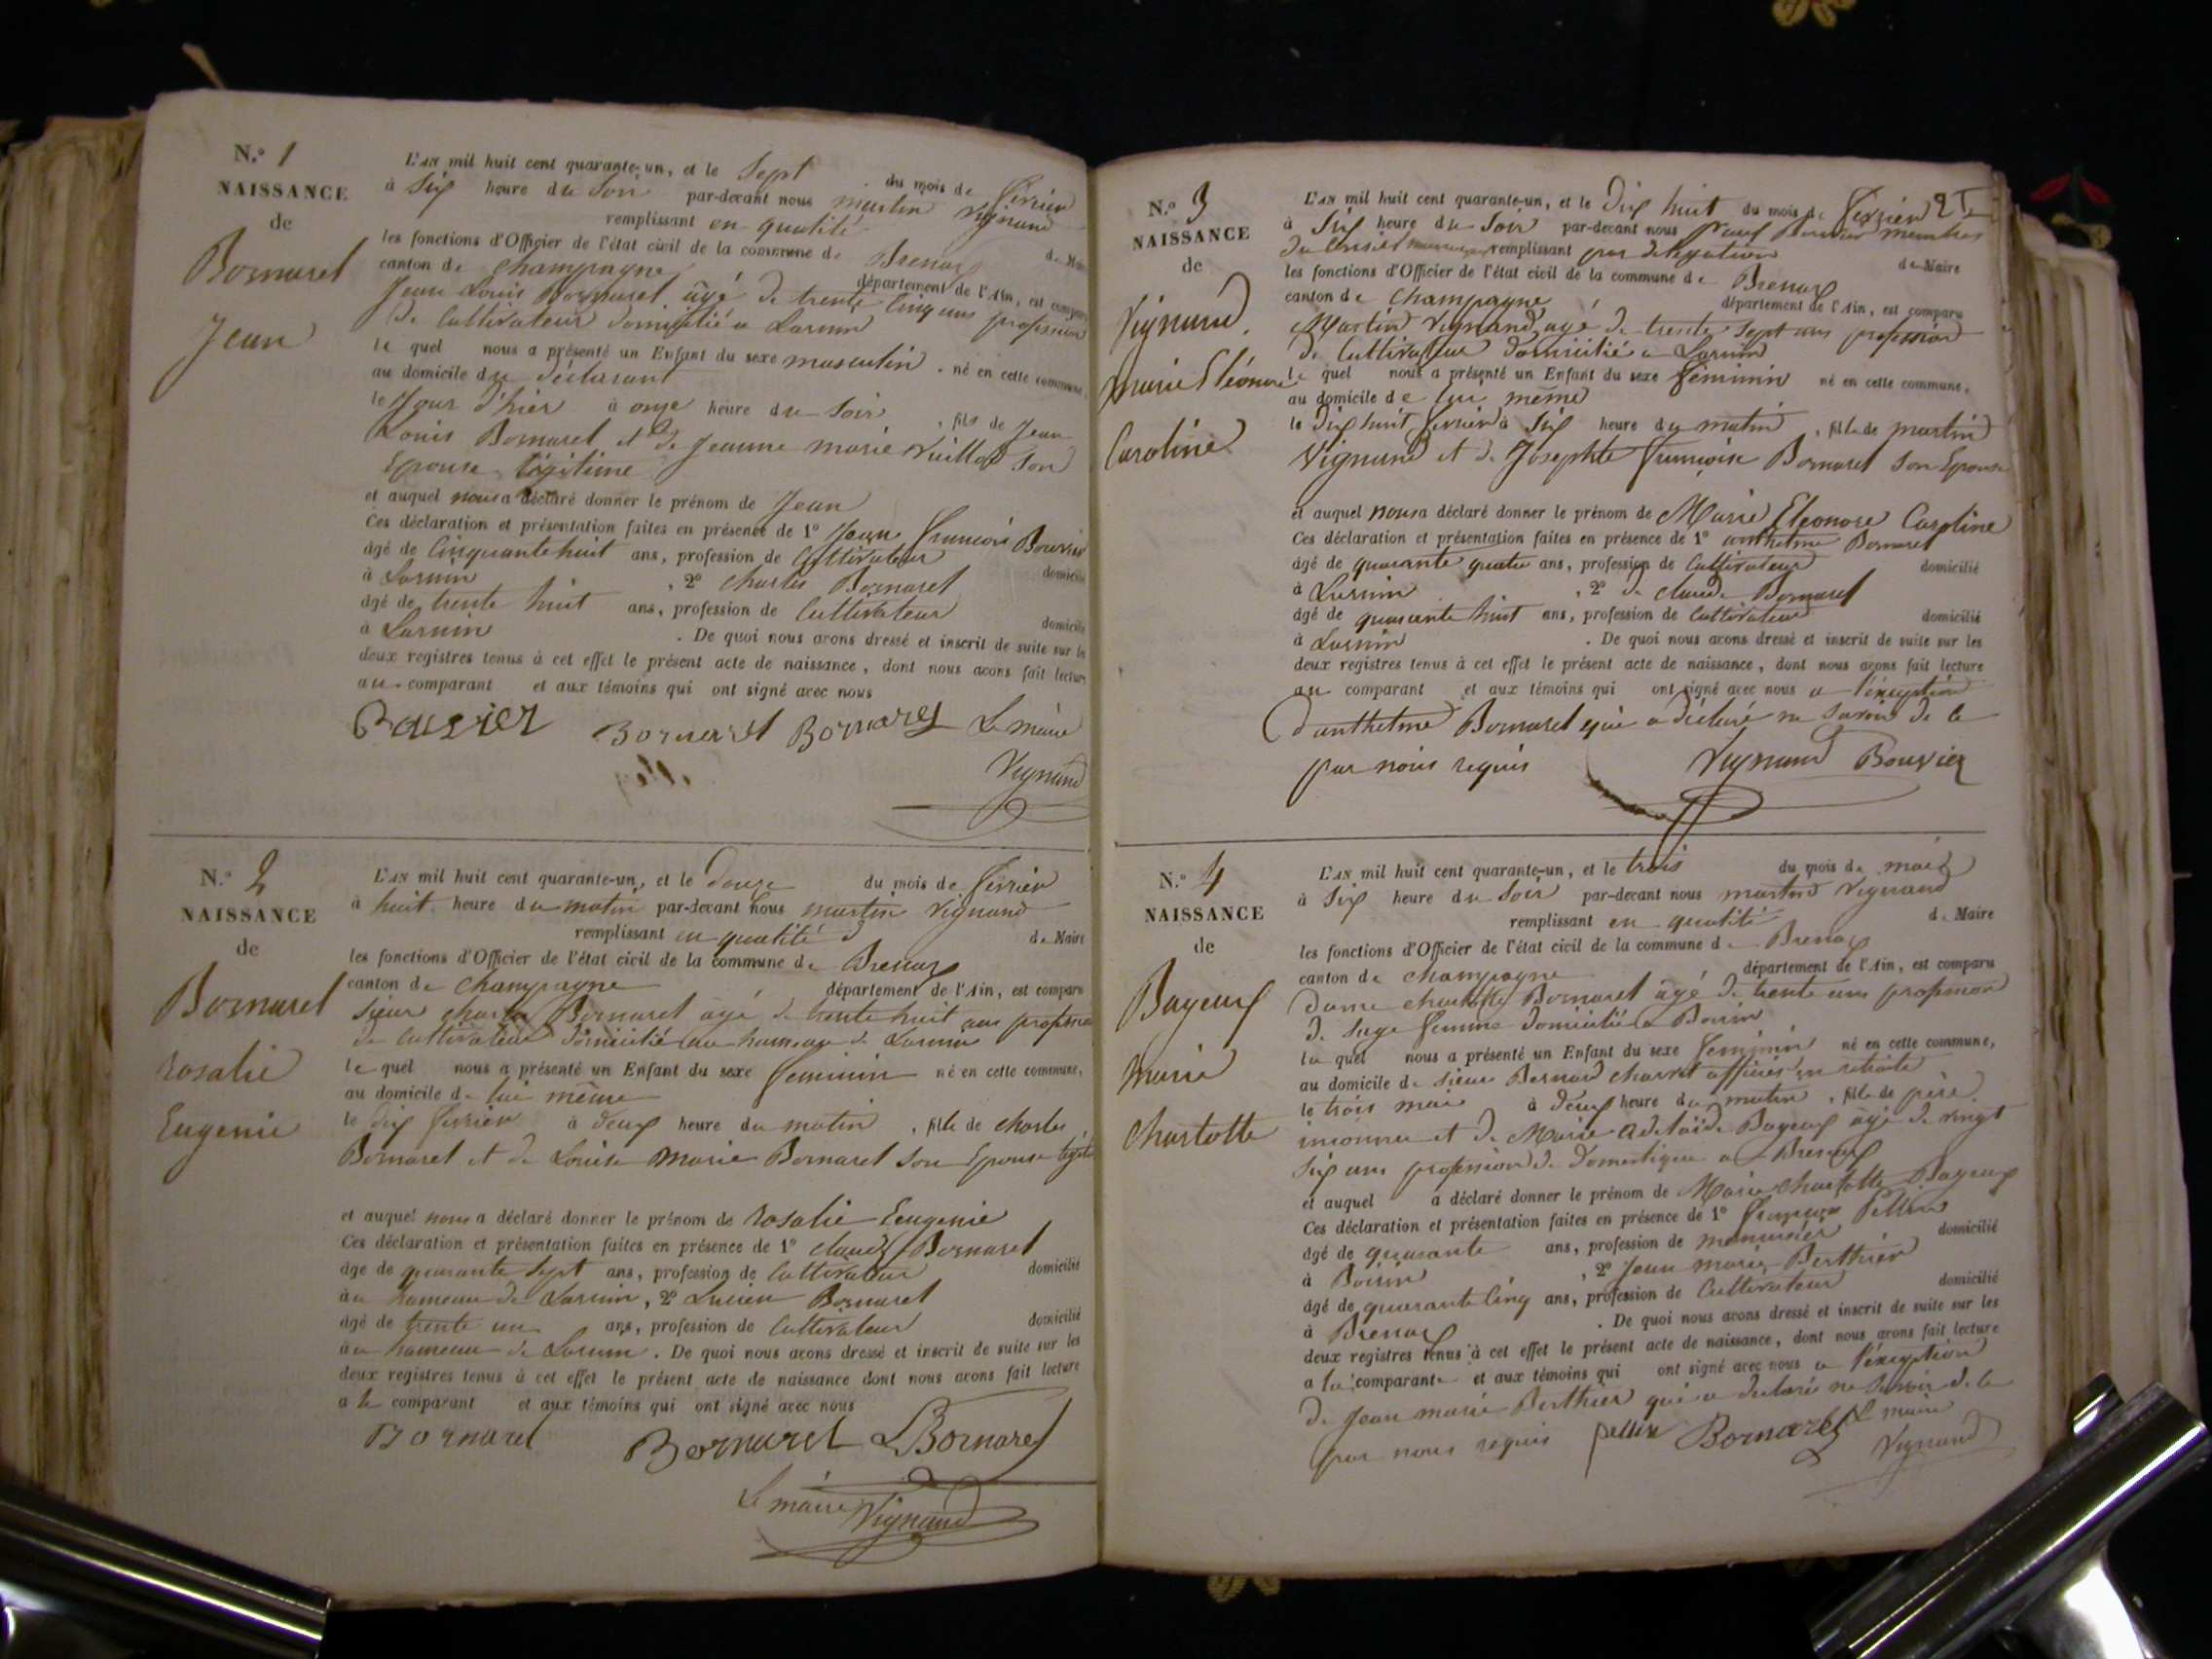 N.° 1
NAISSANCE
de
Bornarel
Jean
L'AN mil huit cent quarante-un, et le Sept du mois de février
à Six heure du Soir par-devant nous martin Vignand
remplissant en qualité de Maire
les fonctions d'Officier de l'état civil de la commune de Brenaz
canton de Champagne département de l'Ain, est comparu
Jean Louis Bornarel âgé de trente Cinq ans profession
de Cultivateur domicilié a Larnin
le quel nous a présenté un Enfant du sexe masculin, né en cette commune,
au domicile du déclarant
le Jour d'hier à onze heure du Soir, fils de Jean
Louis Bornarel et de Jeanne marie Vuillod Son
Epouse légitime
et auquel nous a déclaré donner le prénom de Jean
Ces déclaration et présentation faites en présence de 1° Jean françois Bouvier
âgé de Cinquante huit ans, profession de Cultivateur domicilié
à Larnin, 2° Charles Bornarel
âgé de trente huit ans, profession de Cultivateur domicilié
à Larnin. De quoi nous avons dressé et inscrit de suite sur les
deux registres tenus à cet effet le présent acte de naissance, dont nous avons fait lecture
au comparant et aux témoins qui ont signé avec nous
Bouvier Bornarel Bornarel Le maire
Vignand
N.° 2
NAISSANCE
de
Bornarel
rosalie
Eugenie
L'AN mil huit cent quarante-un, et le douze du mois de février
à huit heure du matin par-devant nous martin Vignand
remplissant en qualité de Maire
les fonctions d'Officier de l'état civil de la commune de Brenaz
canton de Champagne département de l'Ain, est comparu
Sieur charles Bornarel agé de trente huit ans profession
de Cultivateur domicilié au hameau de Larnin
le quel nous a présenté un Enfant du sexe feminin né en cette commune,
au domicile de lui même
le dix fevrier à deux heure du matin, fille de charles
Bornarel et de Louise Marie Bornarel Son Epouse
et auquel nous a déclaré donner le prénom de rosalie Eeugenie
Ces déclaration et présentation faites en présence de 1° claude Bornarel
âgé de quarante Sept ans, profession de Cultivateur domicilié
au hameau de Larnin, 2° Lucien Bornarel
âgé de trente un ans, profession de Cultivateur domicilié
au hameau de Larnin. De quoi nous avons dressé et inscrit de suite sur les
deux registres tenus à cet effet le présent acte de naissance dont nous avons fait lecture
a le comparant et aux témoins qui ont signé avec nous
Bornarel Bornarel LBornarel
Le maire Vignand
25
N.° 3
NAISSANCE
de
Vignand
marie Eléonore
Caroline
L'AN mil huit cent quarante-un, et le Dix huit du mois de février
à Six heure du Soir par-devant nous Bouvier membre
du Conseil municipal remplissant par délégation de Maire
les fonctions d'Officier de l'état civil de la commune de Brenaz
canton de Champagne département de l'Ain, est comparu
Martin Vignand, agé de trente Sept ans profession
de Cultivateur domicilié a Larnin
le quel nous a présenté un Enfant du sexe féminin né en cette commune,
au domicile de lui même
le Dix huit fevrier à Six heure du matin, fille de martin
Vignand et de Josephte françoise Bornarel Son Epouse
et auquel nous a déclaré donner le prénom de Marie Eleonore Caroline
Ces déclaration et présentation faites en présence de 1° anthelme Bornarel
âgé de quarante quatre ans, profession de Cultivateur domicilié
à Larnin, 2° de claude Bornarel
âgé de quarante huit ans, profession de Cultivateur domicilié
à Larnin. De quoi nous avons dressé et inscrit de suite sur les
deux registres tenus à cet effet le présent acte de naissance, dont nous avons fait lecture
au comparant et aux témoins qui ont signé avec nous a l'éxception
d'anthelme Bornarel qui a déclaré ne Savoir de ce
par nous requis Vignand Bouvier
N.° 4
NAISSANCE
de
Bayeux
marie
Charlotte
L'AN mil huit cent quarante-un, et le trois du mois de mai
à Six heure du Soir par-devant nous martin Vignand
remplissant en qualité de Maire
les fonctions d'Officier de l'état civil de la commune de Brenaz
canton de Champagne département de l'Ain, est comparu
Dame charlotte Bornarel âgé de trente ans profession
de Sage femme domicilié a Boirin
la quel nous a présenté un Enfant du sexe feminin né en cette commune,
au domicile de Sieur Bernard charvet officier en retraite
le trois mai à deux heure du matin, fille de père
inconnu et de Marie adelaïde Bayeux âgé de vingt
Six ans profession de domestique a Brenaz
et auquel a déclaré donner le prénom de Marie charlotte Bayeux
Ces déclaration et présentation faites en présence de 1° françois
âgé de quarante ans, profession de menuisier domicilié
à Boirin, 2° Jean marie Berthier
âgé de quarante Cinq ans, profession de Cultivateur domicilié
à Brenaz. De quoi nous avons dressé et inscrit de suite sur les
deux registres tenus à cet effet le présent acte de naissance, dont nous avons fait lecture
a la comparante et aux témoins qui ont signé avec nous a l'éxception
de Jean marie Berthier qui a declaré ne Savoir de ce
par nous requis Bornarel Le maire
Vignand